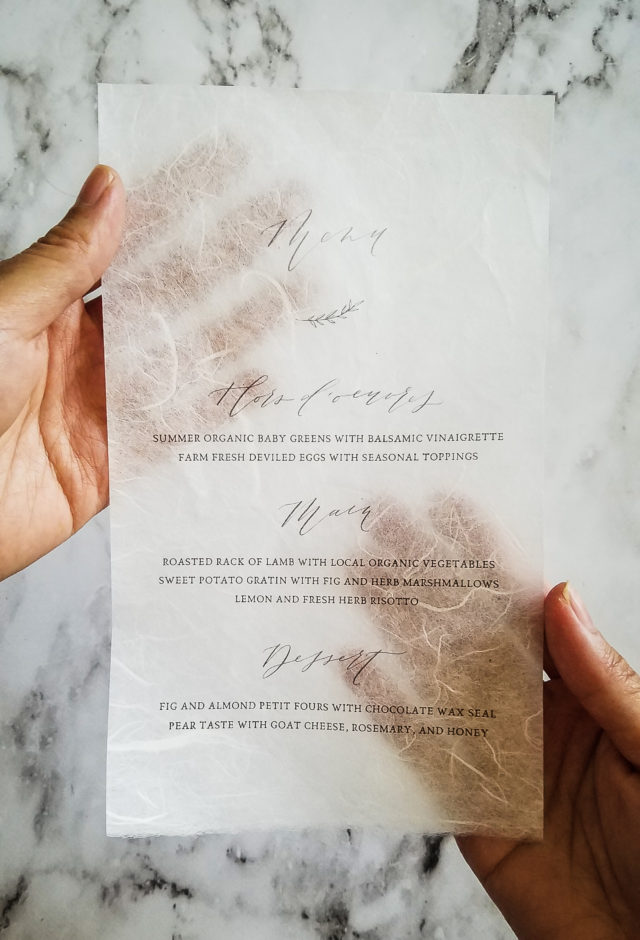 Menu
Hors d'oeuvres
SUMMER ORGANIC BABY GREENS WITH BALSAMIC VINAIGRETTE
FARM FRESH DEVILED EGGS WITH SEASONAL TOPPINGS
Main
ROASTED RACK OF LAMB WITH LOCAL ORGANIC VEGETABLES
SWEET POTATO GRATIN WITH FIG AND HERB MARSHMALLOWS
LEMON AND FRESH HERB RISOTTO
Dessert
FIG AND ALMOND PETIT FOURS WITH CHOCOLATE WAX SEAL
PEAR TASTE WITH GOAT CHEESE, ROSEMARY, AND HONEY